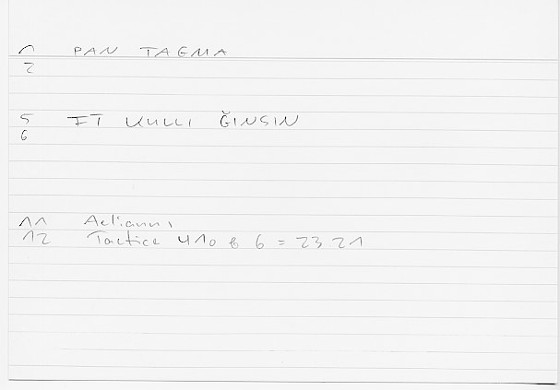 1 PAN TAGMA
2
5 FI KULLI ĞINSIN
6
11 Aelianus
12 Tactica 410 b 6 = 23 21